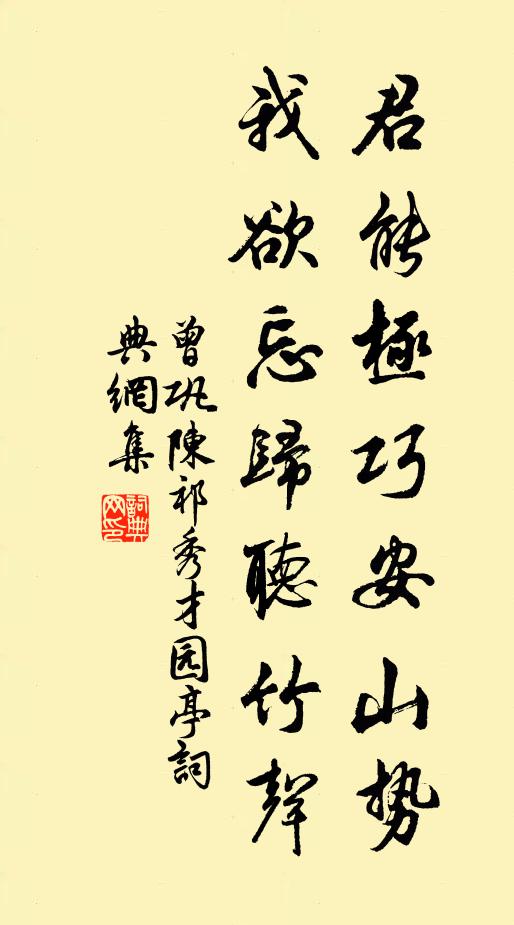 君能極巧安山势
我欲忘歸聽竹聲
曾巩陳祁秀才园亭詞
典網集
詞典网印